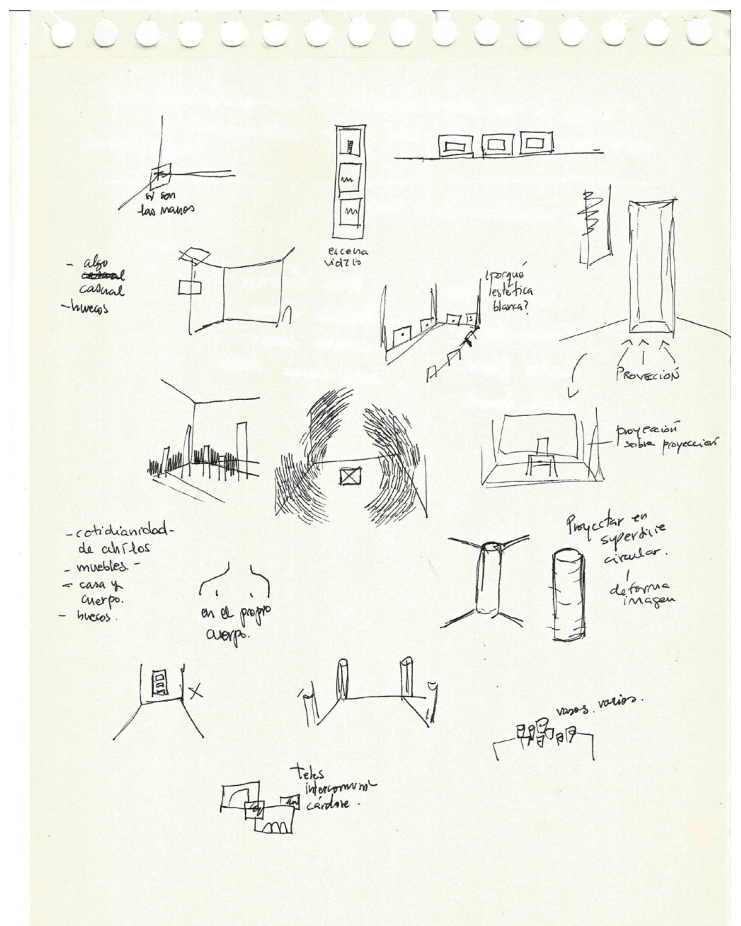 si son
las manos
escena
- algo
casual
- huecos
¿porqué
estética
blanca?
PROYECCIÓN
proyección
sobre proyección
- cotidianidad -
- muebles -
- casa y
cuerpo.
- huecos.
en el propio
cuerpo.
Proyectar en
superficie
circular.
deforma
imagen
X
vasos varios.
teles
intercomuni-
cándose.